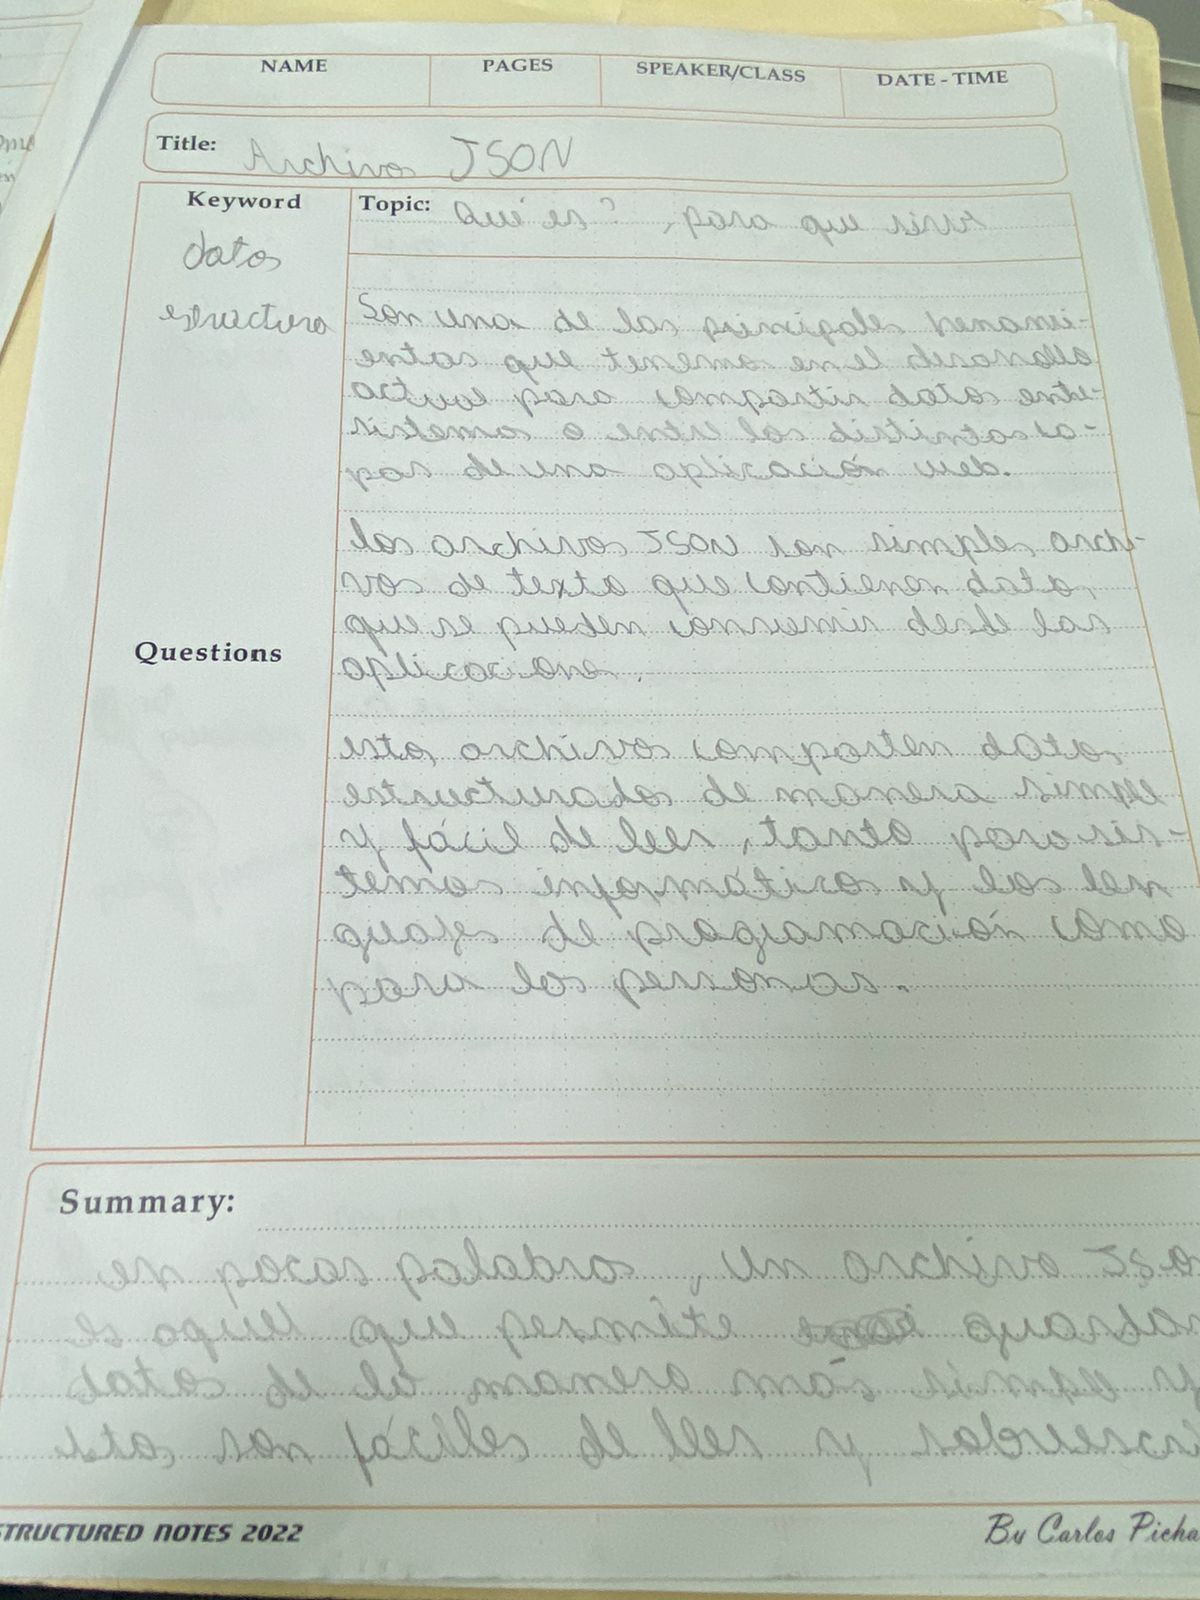 NAME PAGES SPEAKER/CLASS DATE - TIME
Title: Archivos JSON
Keyword
Topic: Qué es? , para que sirve
datos
estructura
Son una de las principales
entas que tenemos en el desarrollo
actual para compartir datos entre
sistemas o entre los distintos ca-
pas de una aplicación web.
los archivos JSON son simples archi-
vos de texto que contienen datos
que se pueden consumir desde las
Questions
aplicaciones.
estos archivos comparten datos
estructurados de manera simple
y fácil de leer, tanto para sis-
temas informáticos y los len
guajes de programación como
para los personas.
Summary:
en pocas palabras, un archivo JSO
es aquel que permite guardar
datos de la manera más simple y
estos son fáciles de leer y sobreescri
STRUCTURED NOTES 2022
By Carlos Picha